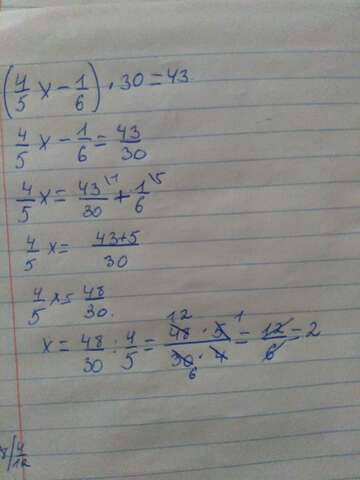 (4/5 x - 1/6) · 30 = 43
4/5 x - 1/6 = 43/30
4/5 x = 43\1/30 + 1\5/6
4/5 x = 43+5/30
4/5 x = 48/30.
x = 48/30 : 4/5 = 12 48 · 5 1/30 6 · 4 = 12/6 = 2
4/12